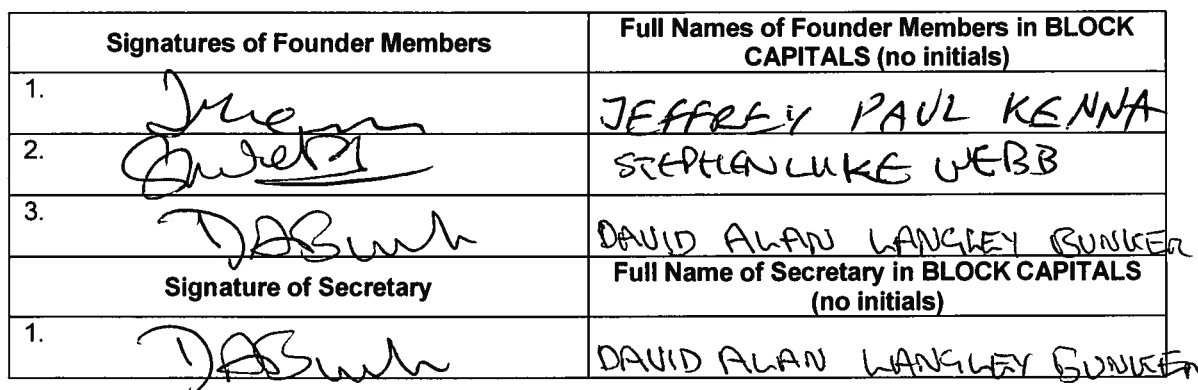 Signatures of Founder Members
Full Names of Founder Members in BLOCK
CAPITALS (no initials)
1.
JEFFREY PAUL KENNA
2.
STEPHEN LUKE WEBB
3.
DABunk
DAVID ALAN LANGLEY BUNKER
Signature of Secretary
Full Name of Secretary in BLOCK CAPITALS
(no initials)
1.
DABunk
DAVID ALAN LANGLEY BUNKER